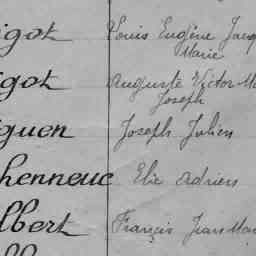 igot Louis Eugène Jacq
Marie
igot Auguste Victor Ma
Joseph
guen Joseph Julien
henneuc Elie Adrien
lbert François Jean Mar